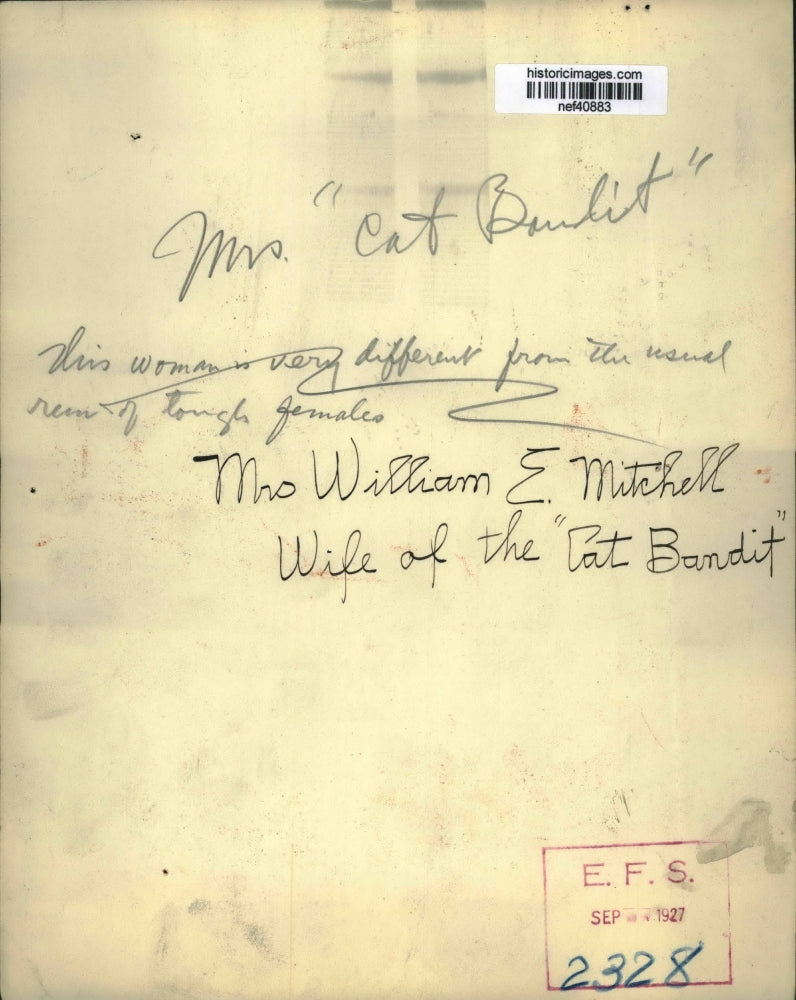 historicimages.com
nef40883
Mrs. "Cat Bandit"
This woman is very different from the usual
of tough females
Mrs William E. Mitchell
Wife of the "Cat Bandit"
E. F. S.
SEP 1927
2328